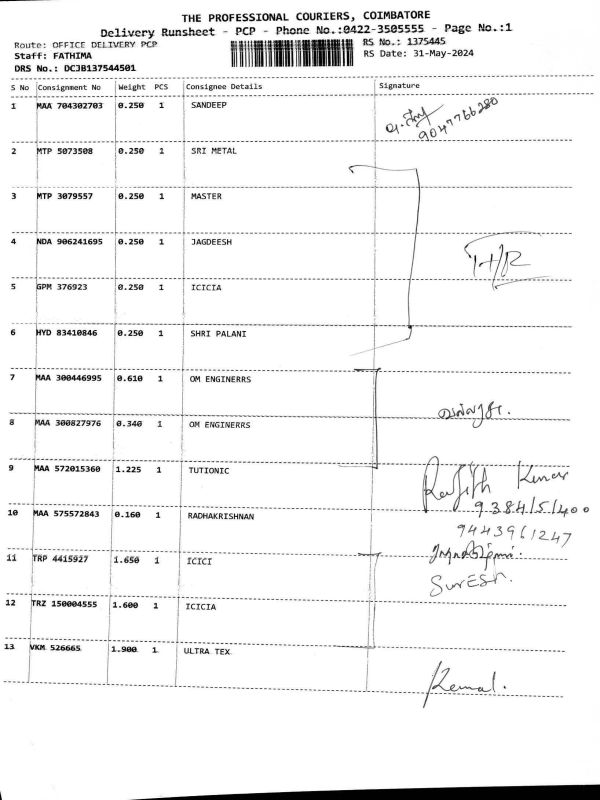 THE PROFESSIONAL COURIERS, COIMBATORE
Delivery Runsheet - PCP - Phone No.:0422-3505555 - Page No.:1
Route: OFFICE DELIVERY PCP RS No.: 1375445
Staff: FATHIMA RS Date: 31-May-2024
DRS No.: DCJB137544501
S No Consignment No Weight PCS Consignee Details Signature
1 MAA 704302703 0.250 1 SANDEEP
9047766280
2 MTP 5073508 0.250 1 SRI METAL
3 MTP 3079557 0.250 1 MASTER
4 NDA 906241695 0.250 1 JAGDEESH
5 GPM 376923 0.250 1 ICICIA
6 HYD 83410846 0.250 1 SHRI PALANI
7 MAA 300446995 0.610 1 OM ENGINERRS
8 MAA 300827976 0.340 1 OM ENGINERRS
9 MAA 572015360 1.225 1 TUTIONIC
10 MAA 575572843 0.160 1 RADHAKRISHNAN
9443961247
11 TRP 4415927 1.650 1 ICICI
SurESh.
12 TRZ 150004555 1.600 1 ICICIA
13 VKM 526665 1.900 1 ULTRA TEX
Kemal.